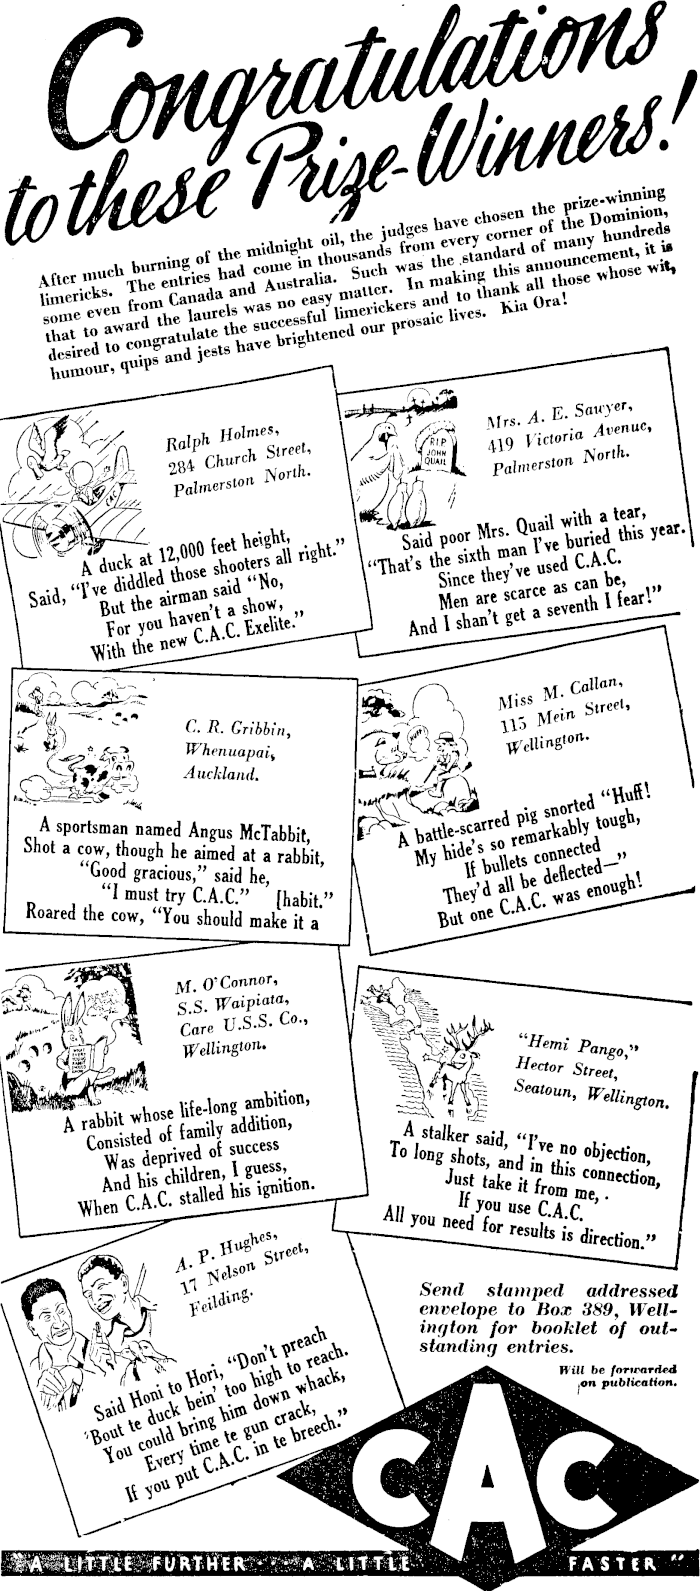 Congratulations
to these Prize-Winners!
After much burning of the midnight oil, the judges have chosen the prize-winning
limericks. The entries had come in thousands from every corner of the Dominion,
some even from Canada and Australia. Such was the standard of many hundreds
that to award the laurels was no easy matter. In making this announcement, it is
desired to congratulate the successful limerickers and to thank all those whose wit,
humour, quips and jests have brightened our prosaic lives. Kia Ora!
Ralph Holmes,
284 Church Street,
Palmerston North.
A duck at 12,000 feet height,
Said, "I've diddled those shooters all right."
But the airman said "No,
For you haven't a show,
With the new C.A.C. Exelite."
RIP
JOHN
QUAIL
Mrs. A. E. Sawyer,
419 Victoria Avenue,
Palmerston North.
Said poor Mrs. Quail with a tear,
"That's the sixth man I've buried this year.
Since they've used C.A.C.
Men are scarce as can be,
And I shan't get a seventh I fear!"
C. R. Gribbin,
Whenuapai,
Auckland.
A sportsman named Angus McTabbit,
Shot a cow, though he aimed at a rabbit,
"Good gracious," said he,
"I must try C.A.C." [habit."
Roared the cow, "You should make it a
HUFF
Miss M. Callan,
115 Mein Street,
Wellington.
A battle-scarred pig snorted "Huff!
My hide's so remarkably tough,
If bullets connected
They'd all be deflected—"
But one C.A.C. was enough!
M. O'Connor,
S.S. Waipiata,
Care U.S.S. Co.,
Wellington.
A rabbit whose life-long ambition,
Consisted of family addition,
Was deprived of success
And his children, I guess,
When C.A.C. stalled his ignition.
"Hemi Pango,"
Hector Street,
Seatoun, Wellington.
A stalker said, "I've no objection,
To long shots, and in this connection,
Just take it from me,
If you use C.A.C.
All you need for results is direction."
A. P. Hughes,
17 Nelson Street,
Feilding.
Said Honi to Hori, "Don't preach
'Bout te duck bein' too high to reach.
You could bring him down whack,
Every time te gun crack,
If you put C.A.C. in te breech."
Send stamped addressed
envelope to Box 389, Well-
ington for booklet of out-
standing entries.
Will be forwarded
on publication.
CAC
"A LITTLE FURTHER · · · A LITTLE FASTER"